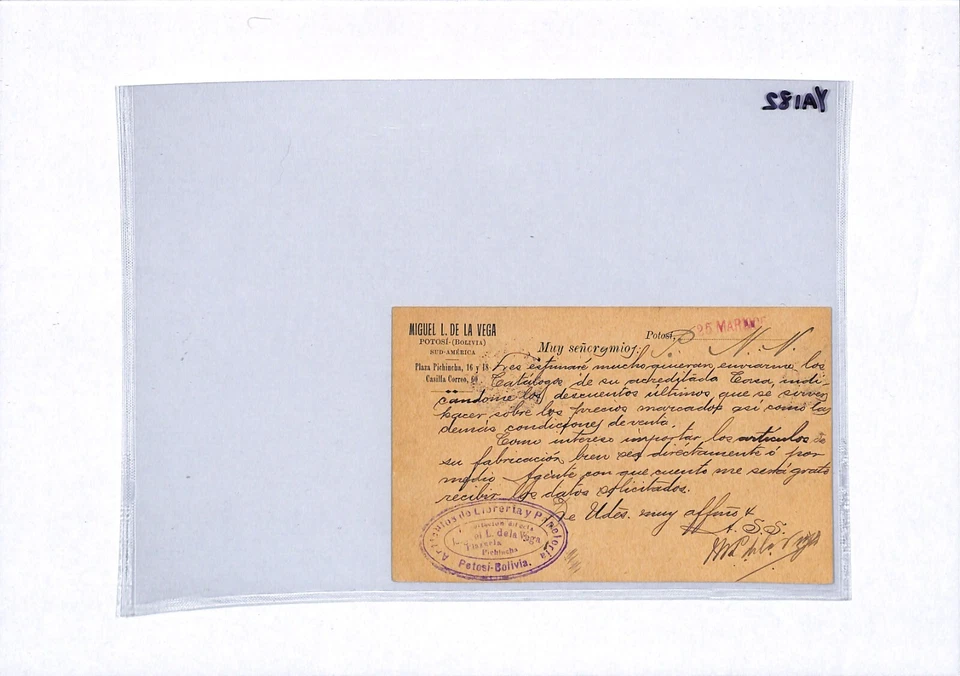 YA182
MIGUEL L. DE LA VEGA
POTOSÍ-(BOLIVIA)
SUD-AMÉRICA
Plaza Pichincha, 16 y 18
Casilla Correo, 60
Potosí, 25 MAR
Muy señores mios: N. N.
Les estimaré mucho quieran enviarme los
Catálogos de su acreditada Casa, indi-
cándome los descuentos últimos que se sirven
hacer sobre los precios marcados así como las
demás condiciones de venta.
Como intereso importar los artículos de
su fabricación, bien sea diréctamente ó por
medio Agente con que cuento me será grato
recibir los datos solicitados.
De Udes. muy affmo &
A. S. S.
Artículos de Librería y Papelería
L. de la Vega
Librería
Pichincha
Potosí-Bolivia.